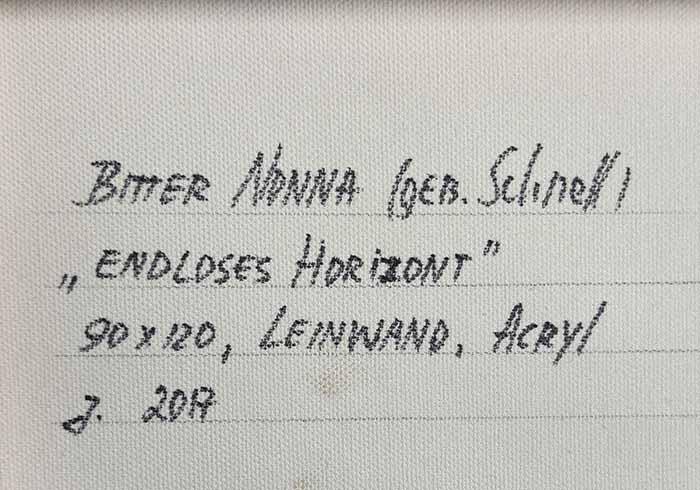 BITTER NONNA (GEB. Schnell)
„ENDLOSES HORIZONT"
90 x 120, LEINWAND, ACRYL
J. 2017